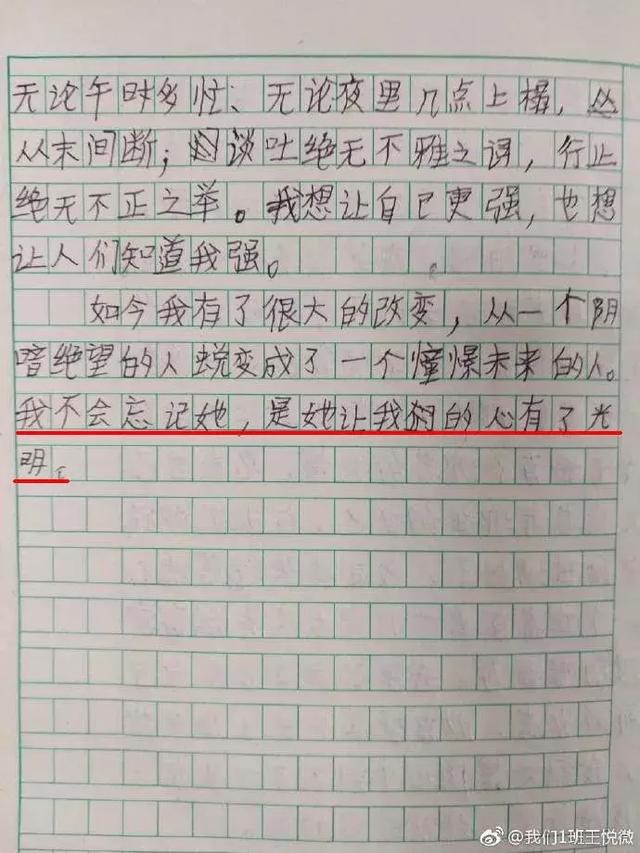 无论午时多忙、无论夜里几点上榻，
从未间断；谈吐绝无不雅之词，行止
绝无不正之举。我想让自已更强，也想
让人们知道我强。
如今我有了很大的改变，从一个阴
暗绝望的人蜕变成了一个憧憬未来的人。
我不会忘记她，是她让我的心有了光
明。
@我们1班王悦微